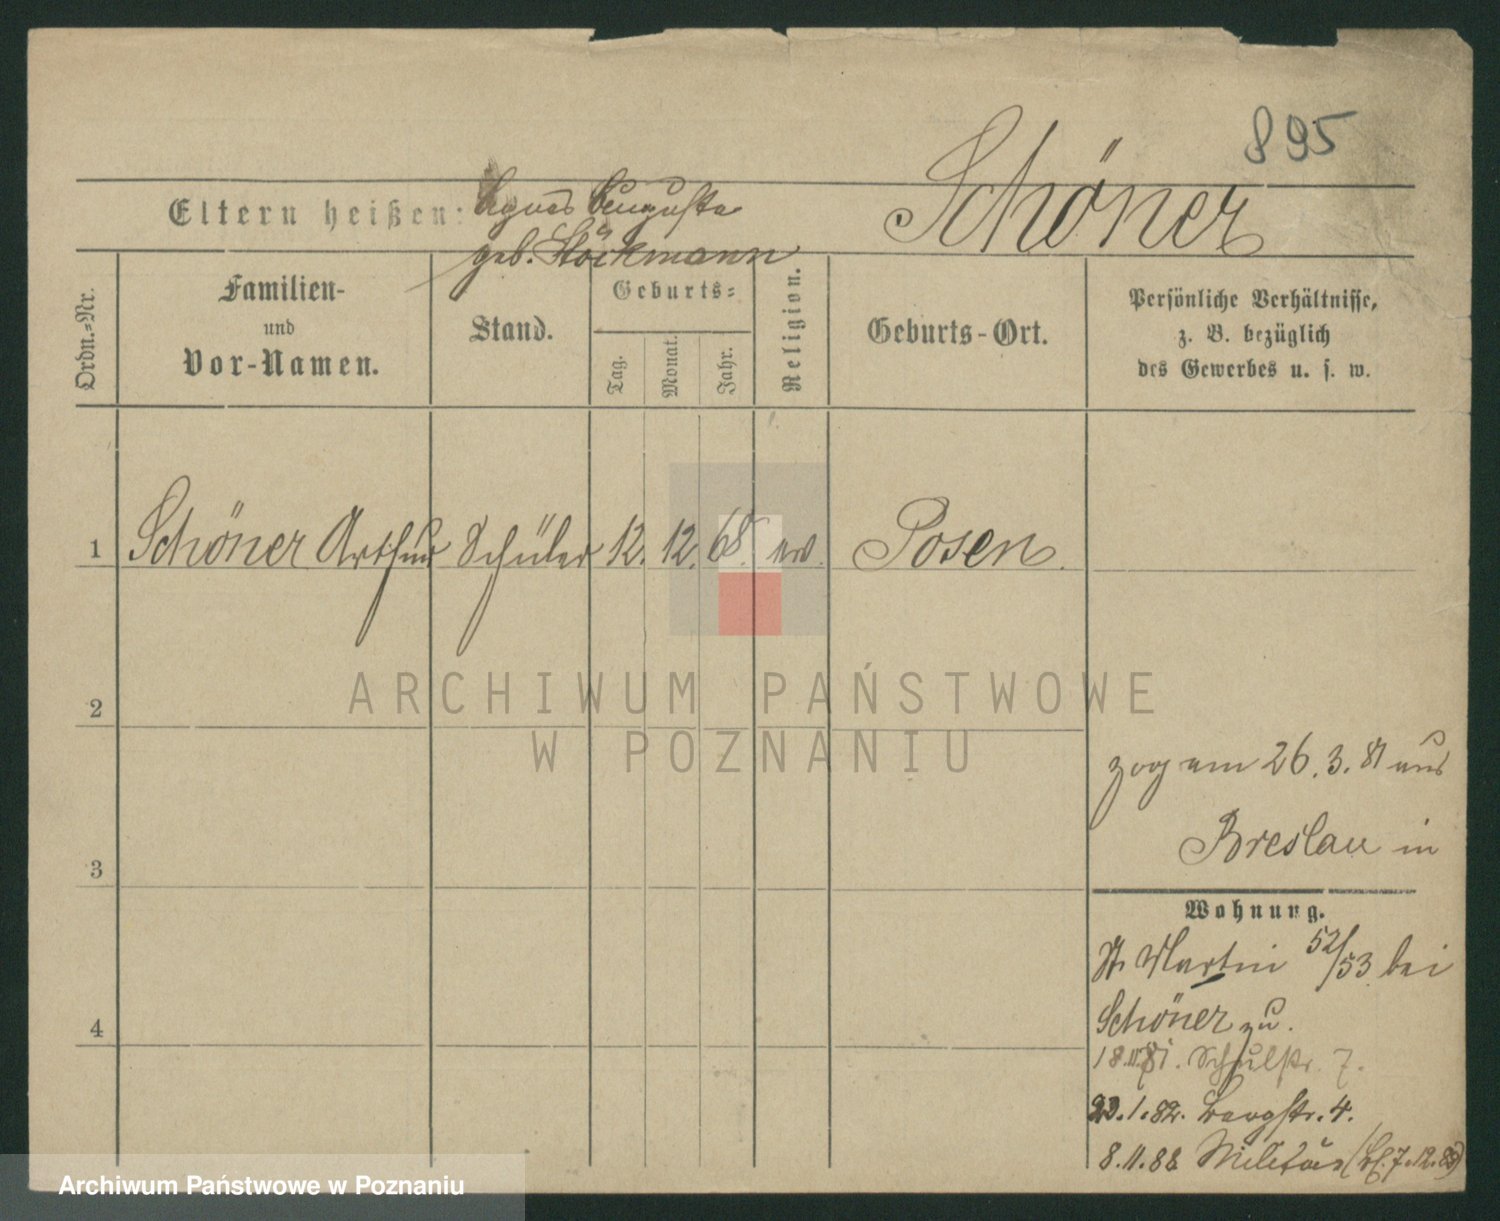 895
Schöner
Eltern heißen: Agnes Auguste
geb. Stöckmann
Ordn.=Nr.
Familien-
und
Vor-Namen.
Stand.
Geburts=
Tag.
Monat.
Jahr.
Religion.
Geburts-Ort.
Persönliche Verhältnisse,
z. B. bezüglich
des Gewerbes u. s. w.
1 Schöner Arthur Schüler 12. 12. 68. ev. Posen.
2
3
4
zog am 26.3.81 aus
Breslau in
Wohnung.
St. Martin 52/53 bei
Schöner zu.
18.11.81. Schulstr. 7.
1.82. Bergstr. 4.
8.11.88 Militär 7.12.88)
ARCHIWUM PAŃSTWOWE
W POZNANIU
Archiwum Państwowe w Poznaniu